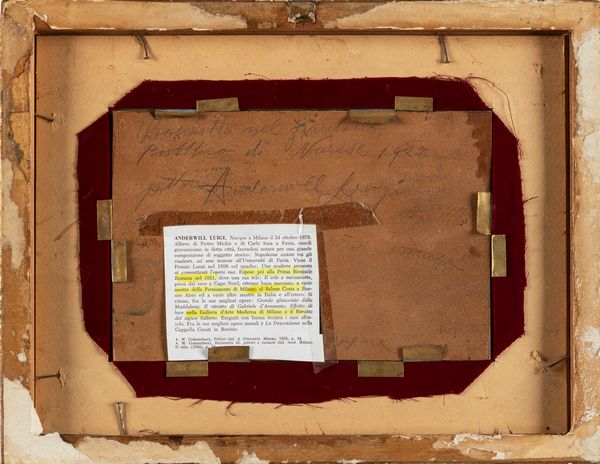 nel giardino
Pubblico di Varese 192
Anderwill Luigi
ANDERWILL LUIGI. Nacque a Milano il 24 ottobre 1878.
Allievo di Pietro Michis e di Carlo Sara a Pavia, esordì
giovanissimo in detta città, facendosi notare per una grande
composizione di soggetto storico: Napoleone sostate tra gli
studenti, ad una lezione all'Università di Pavia. Vinse il
Premio Lauzi nel 1898 col quadro: Uno scultore presenta
al committente l'opera sua. Espose poi alla Prima Biennale
Romana nel 1921, dove una sua tela: Il sole a mezzanotte,
presa dal vero a Capo Nord, ottenne buon successo; a varie
mostre della Permanente di Milano; al Salone Costa a Bue-
nos Aires ed a varie altre mostre in Italia e all'estero. Si
citano, fra le sue migliori opere: Grande ghiacciaio della
Maddalena; Il ritratto di Gabriele d'Annunzio; Effetto di
luce nella Galleria d'Arte Moderna di Milano e il Ritratto
del signor Salterio. Eseguiti con buona tecnica i suoi affre-
schi. Fra le sue migliori opere murali è La Deposizione nella
Cappella Cerati in Bovisio.
A. M. Comanducci, Pittori ital. d. Ottocento. Milano, 1935, p. 14.
A. M. Comanducci, Dizionario ill. pittori e incisori ital. mod. Milano,
II ediz. (1945), p.